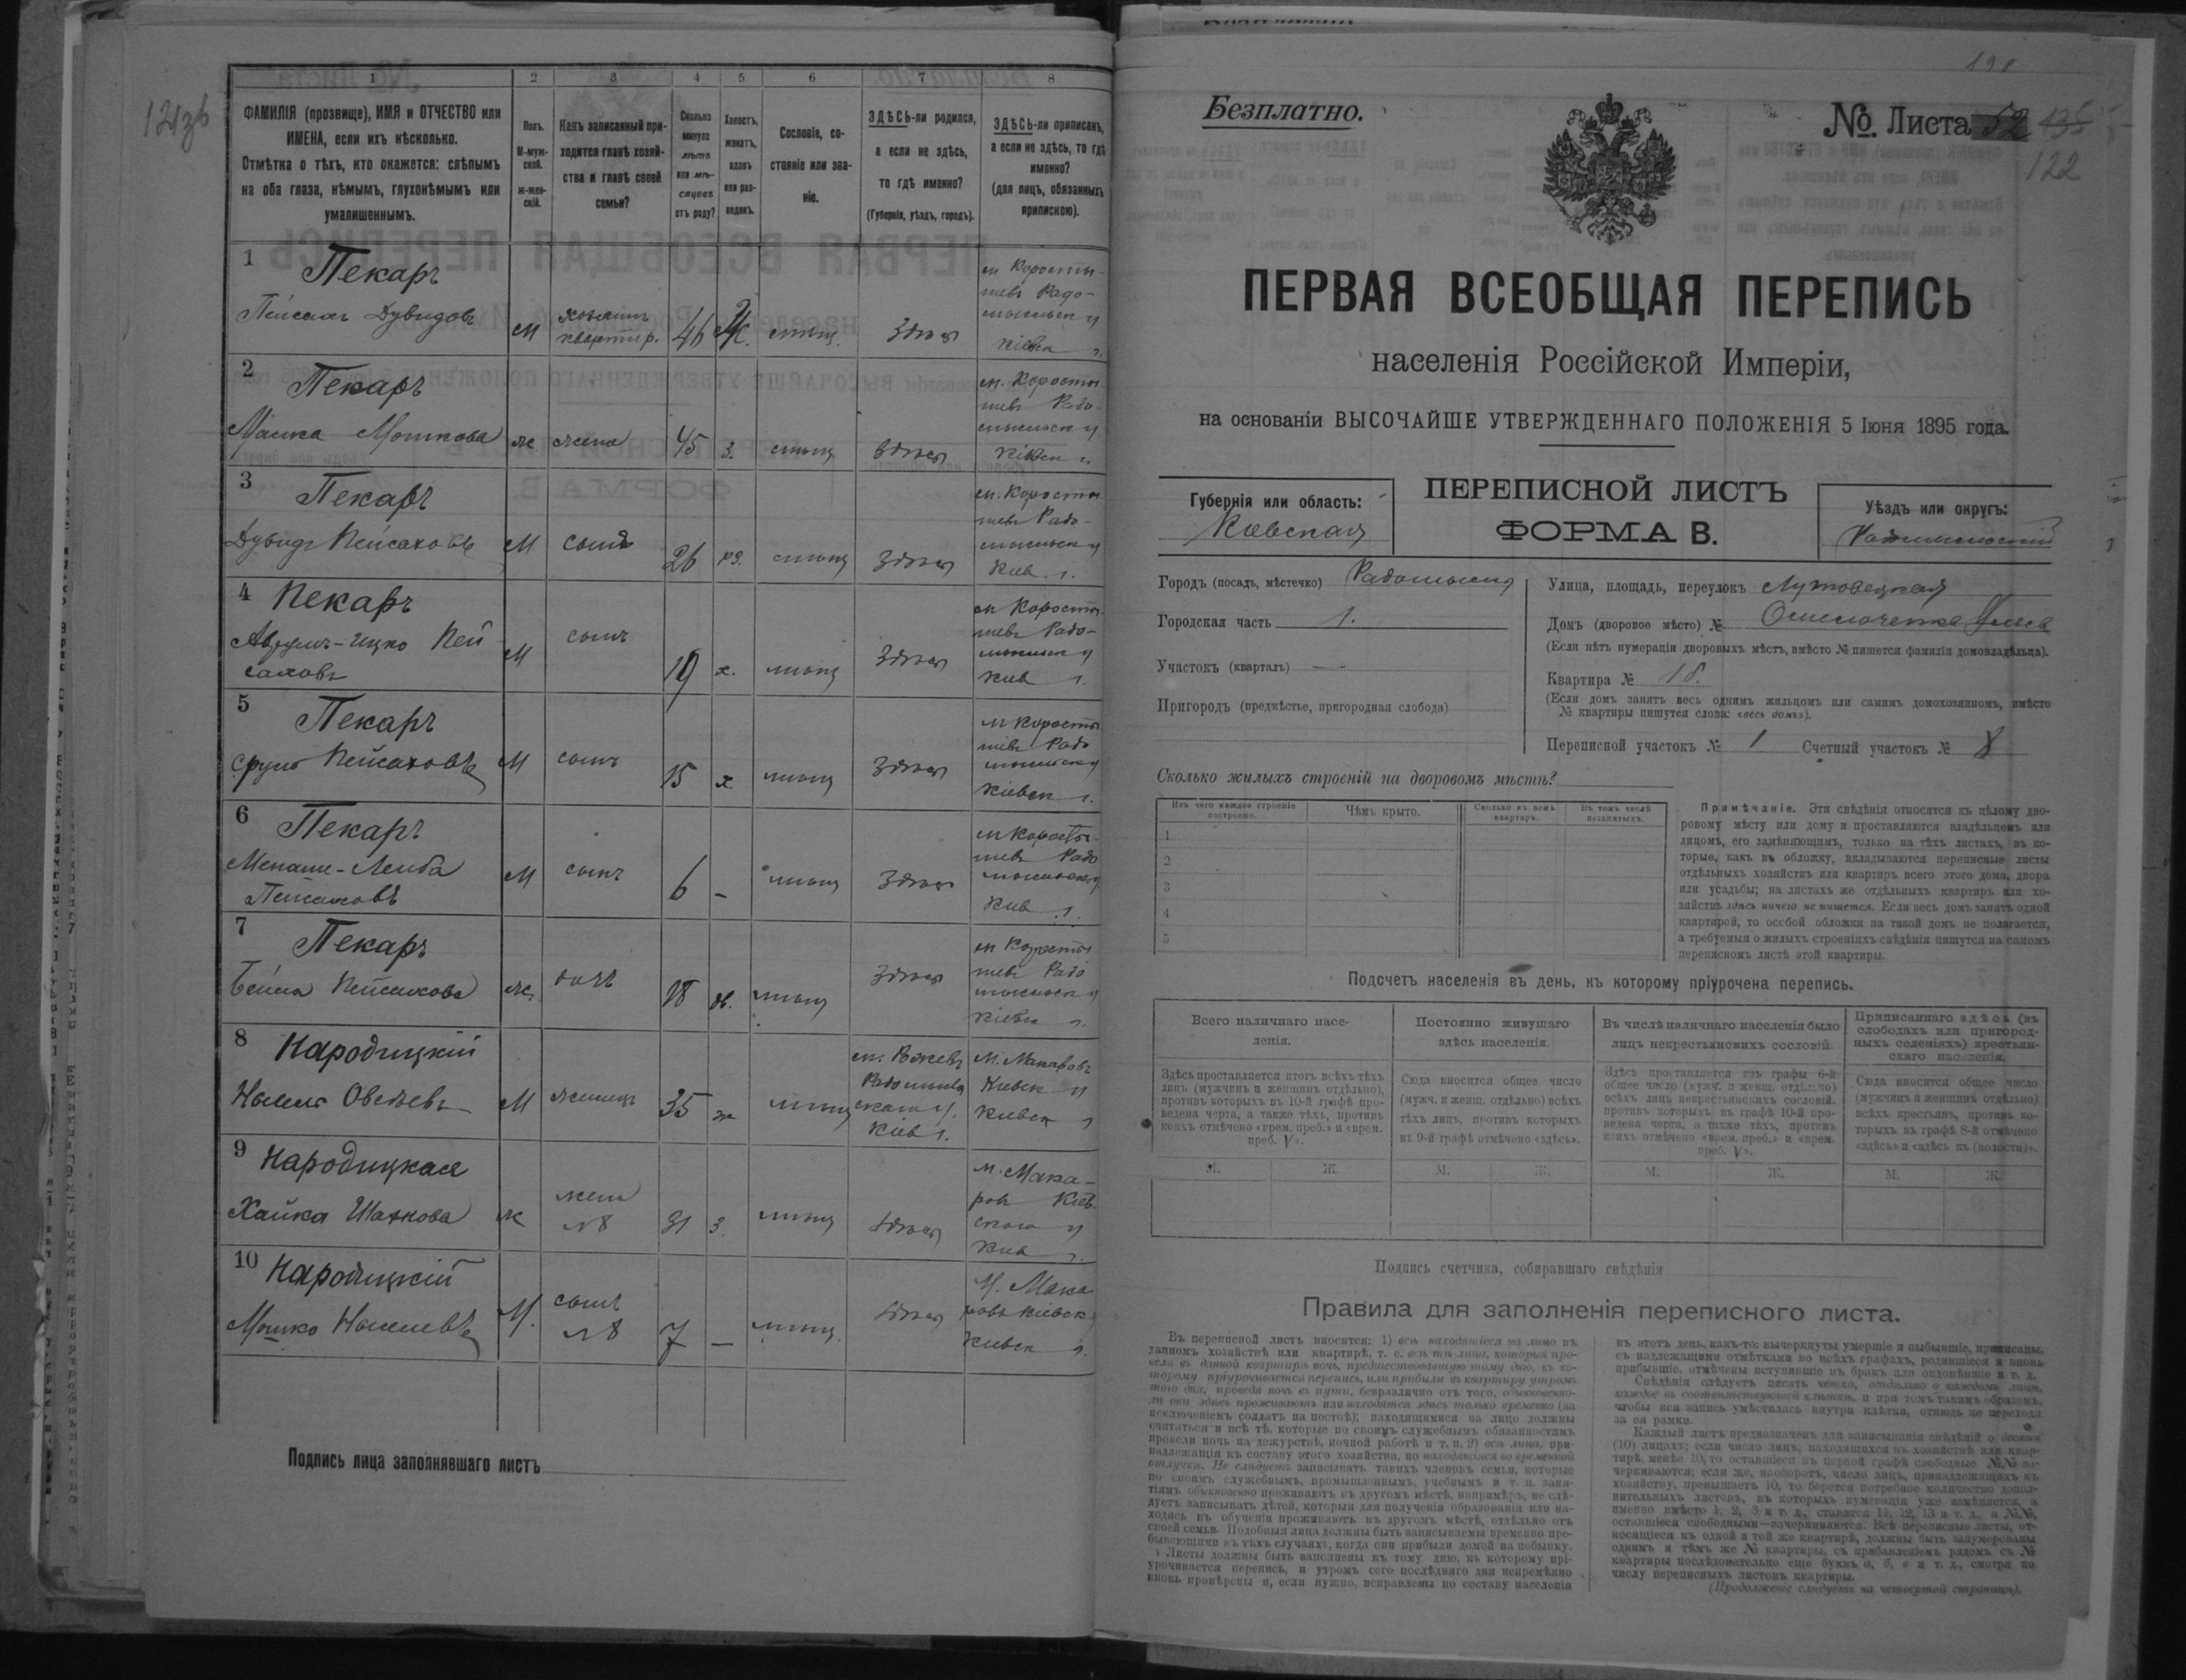 121зб
1 2 3 4 5 6 7 8
ФАМИЛІЯ (прозвище), ИМЯ и ОТЧЕСТВО или
ИМЕНА, если ихъ нѣсколько.
Отмѣтка о тѣхъ, кто окажется: слѣпымъ
на оба глаза, нѣмымъ, глухонѣмымъ или
умалишеннымъ.
Полъ.
М-муж-
ской.
ж-жен-
скій.
Какъ записанный при-
ходится главѣ хозяй-
ства и главѣ своей
семьи?
Сколько
минуло
лѣтъ
или мѣ-
сяцевъ
отъ роду?
Холостъ,
женатъ,
вдовъ
или раз-
веденъ.
Сословіе, со-
стояніе или зва-
ніе.
ЗДѢСЬ-ли родился,
а если не здѣсь,
то гдѣ именно?
(Губернія, уѣздъ, городъ).
ЗДѢСЬ-ли приписанъ,
а если не здѣсь, то гдѣ
именно?
(для лицъ, обязанныхъ
припискою).
1 Пекаръ
Пейсахъ Дувидовъ
М
хозяинъ
квартир.
46
мѣщ.
Здѣсь
м Коросты-
шевъ Радо-
мысльск у
Кіевск г.
2 Пекаръ
Мошкова
ж жена 45 з. мѣщ здѣсь
м. Коросты-
шевъ Радо-
мысльск у
Кіевск г.
3 Пекаръ
Дувидъ Пейсаховъ
М сынъ 26 мѣщ здѣсь
м. Коросты-
шевъ Радо-
мысльск у
Кіев г.
4 Пекаръ
Аврумъ-Ицко Пей
саховъ
М сынъ 19 х. мѣщ здѣсь
м Коросты-
шевъ Радо-
мысльск у
Кіев г.
5 Пекаръ
Сруль Пейсаховъ
М сынъ 15 х. мѣщ здѣсь
м Коросты
шевъ Радо
мысльск у
Кіевск г.
6 Пекаръ
Менаше-Лейба
Пейсаховъ
М сынъ 6 - мѣщ здѣсь
м Коросты-
шевъ Радо
мысльск у
Кіев г.
7 Пекаръ
Бейла Пейсахова
ж. дочь 18 мѣщ здѣсь
м Коросты
шевъ Радо
мысльск у
Кіевск г.
8 Народицкій
Овсѣевъ
М жилецъ 35 ж мѣщ
Радомысль
скаго у.
Кіев г.
М. Макаровъ
Кіевск у
Кіевск г
9 Народицкая
Хайка
ж
жена
№8
31 з. мѣщ здѣсь
м. Мака-
ровъ Кіев
скаго у
Кіев г.
10 Народицкій
Мошко
М.
сынъ
№8
7 — мѣщ. здѣсь
М. Мака
ровъ Кіевск у
Кіевск г.
Подпись лица заполнявшаго листъ
Безплатно.
№. Листа 52 135
122
ПЕРВАЯ ВСЕОБЩАЯ ПЕРЕПИСЬ
населенія Россійской Имперіи,
на основаніи ВЫСОЧАЙШЕ УТВЕРЖДЕННАГО ПОЛОЖЕНІЯ 5 Іюня 1895 года.
Губернія или область:
Кіевская
ПЕРЕПИСНОЙ ЛИСТЪ
ФОРМА В.
Уѣздъ или округъ:
Радомысльскій
Городъ (посадъ, мѣстечко) Радомысль
Городская часть 1.
Участокъ (кварталъ) —
Пригородъ (предмѣстье, пригородная слобода)
Улица, площадь, переулокъ
Домъ (дворовое мѣсто) №
(Если нѣтъ нумераціи дворовыхъ мѣстъ, вмѣсто № пишется фамилія домовладѣльца).
Квартира №
(Если домъ занятъ весь однимъ жильцомъ или самимъ домохозяиномъ, вмѣсто
№ квартиры пишутся слова: «весь домъ»).
Переписной участокъ № 1 Счетный участокъ № 8
Сколько жилыхъ строеній на дворовомъ мѣстѣ?
Изъ чего каждое строеніе
построено.
Чѣмъ крыто.
Сколько въ немъ
квартиръ.
Въ томъ числѣ
незанятыхъ.
1
2
3
4
5
Примѣчаніе. Эти свѣдѣнія относятся къ цѣлому дво-
ровому мѣсту или дому и проставляются владѣльцемъ или
лицомъ, его замѣняющимъ, только на тѣхъ листахъ, въ ко-
торые, какъ въ обложку, вкладываются переписные листы
отдѣльныхъ хозяйствъ или квартиръ всего этого дома, двора
или усадьбы; на листахъ же отдѣльныхъ квартиръ или хо-
зяйствъ здѣсь ничего не пишется. Если весь домъ занятъ одной
квартирой, то особой обложки на такой домъ не полагается,
а требуемыя о жилыхъ строеніяхъ свѣдѣнія пишутся на самомъ
переписномъ листѣ этой квартиры.
Подсчетъ населенія въ день, къ которому пріурочена перепись.
Всего наличнаго насе-
ленія.
Постоянно живущаго
здѣсь населенія.
Въ числѣ наличнаго населенія было
лицъ некрестьянскихъ сословій.
Приписаннаго здѣсь (въ
слободахъ или пригород-
ныхъ селеніяхъ) крестьян-
скаго населенія.
Здѣсь проставляется итогъ всѣхъ тѣхъ
лицъ (мужчинъ и женщинъ отдѣльно),
противъ которыхъ въ 10-й графѣ про-
ведена черта, а также тѣхъ, противъ
коихъ отмѣчено «врем. преб.» и «врем.
преб. V».
Сюда вносится общее число
(мужч. и женщ. отдѣльно) всѣхъ
тѣхъ лицъ, противъ которыхъ
въ 9-й графѣ отмѣчено «здѣсь».
Здѣсь проставляется изъ графы 6-й
общее число (мужч. и женщ. отдѣльно)
всѣхъ лицъ некрестьянскихъ сословій,
противъ которыхъ въ графѣ 10-й про-
ведена черта, а также тѣхъ, противъ
коихъ отмѣчено «врем. преб.» и «врем.
преб. V».
Сюда вносится общее число
(мужчинъ и женщинъ отдѣльно)
всѣхъ крестьянъ, противъ ко-
торыхъ въ графѣ 8-й отмѣчено
«здѣсь» и «здѣсь къ (волости)».
М. Ж. М. Ж. М. Ж. М. Ж.
Подпись счетчика, собиравшаго свѣдѣнія
Правила для заполненія переписного листа.
Въ переписной листъ вносятся: 1) всѣ находящіеся на лицо въ
данномъ хозяйствѣ или квартирѣ, т. е. всѣ тѣ лица, которыя про-
вели въ данной квартирѣ ночь, предшествовавшую тому дню, къ ко-
торому пріурочивается перепись, или прибыли въ квартиру утромъ
того дня, проведя ночь въ пути, безразлично отъ того, обыкновенно-
ли они здѣсь проживаютъ или находятся здѣсь только временно (за
исключеніемъ солдатъ на постоѣ); находящимися на лицо должны
считаться и всѣ тѣ, которые по своимъ служебнымъ обязанностямъ
провели ночь на дежурствѣ, ночной работѣ и т. п. 2) всѣ лица, при-
надлежащія къ составу этого хозяйства, но находящіяся во временной
отлучкѣ. Не слѣдуетъ записывать такихъ членовъ семьи, которые
по своимъ служебнымъ, промышленнымъ, учебнымъ и т. п. заня-
тіямъ обыкновенно проживаютъ въ другомъ мѣстѣ, напримѣръ, не слѣ-
дуетъ записывать дѣтей, которыя для полученія образованія или на-
ходясь въ обученіи проживаютъ въ другомъ мѣстѣ, отдѣльно отъ
своей семьи. Подобныя лица должны быть записываемы временно пре-
бывающими въ тѣхъ случаяхъ, когда они прибыли домой на побывку.
Листы должны быть заполнены къ тому дню, къ которому прі-
урочивается перепись, и утромъ сего послѣдняго дня непремѣнно
вновь провѣрены и, если нужно, исправлены по составу населенія
въ этотъ день, какъ-то: вычеркнуты умершіе и выбывшіе, приписаны,
съ надлежащими отмѣтками во всѣхъ графахъ, родившіеся и вновь
прибывшіе, отмѣчены вступившіе въ бракъ или овдовѣвшіе и т. д.
Свѣдѣнія слѣдуетъ писать четко, отдѣльно о каждомъ лицѣ,
каждое въ соотвѣтствующей клѣткѣ, и при томъ такимъ образомъ,
чтобы вся запись умѣстилась внутри клѣтки, отнюдь не переходя
за ея рамки.
Каждый листъ предназначенъ для записыванія свѣдѣній о десяти
(10) лицахъ; если число лицъ, находящихся въ хозяйствѣ или квар-
тирѣ, менѣе 10, то оставшіеся въ первой графѣ свободные №№ за-
черкиваются; если же, наоборотъ, число лицъ, принадлежащихъ къ
хозяйству, превышаетъ 10, то берется потребное количество допол-
нительныхъ листовъ, въ которыхъ нумерація уже измѣняется, а
именно вмѣсто 1, 2, 3 и т. д., ставятся 11, 12, 13 и т. д., а №№,
оставшіеся свободными—зачеркиваются. Всѣ переписные листы, от-
носящіеся къ одной и той же квартирѣ, должны быть занумерованы
однимъ и тѣмъ же № квартиры, съ прибавленіемъ рядомъ съ №
квартиры послѣдовательно еще буквъ а, б, в и т. д., смотря по
числу переписныхъ листовъ квартиры.
(Продолженіе слѣдуетъ на четвертой страницѣ).